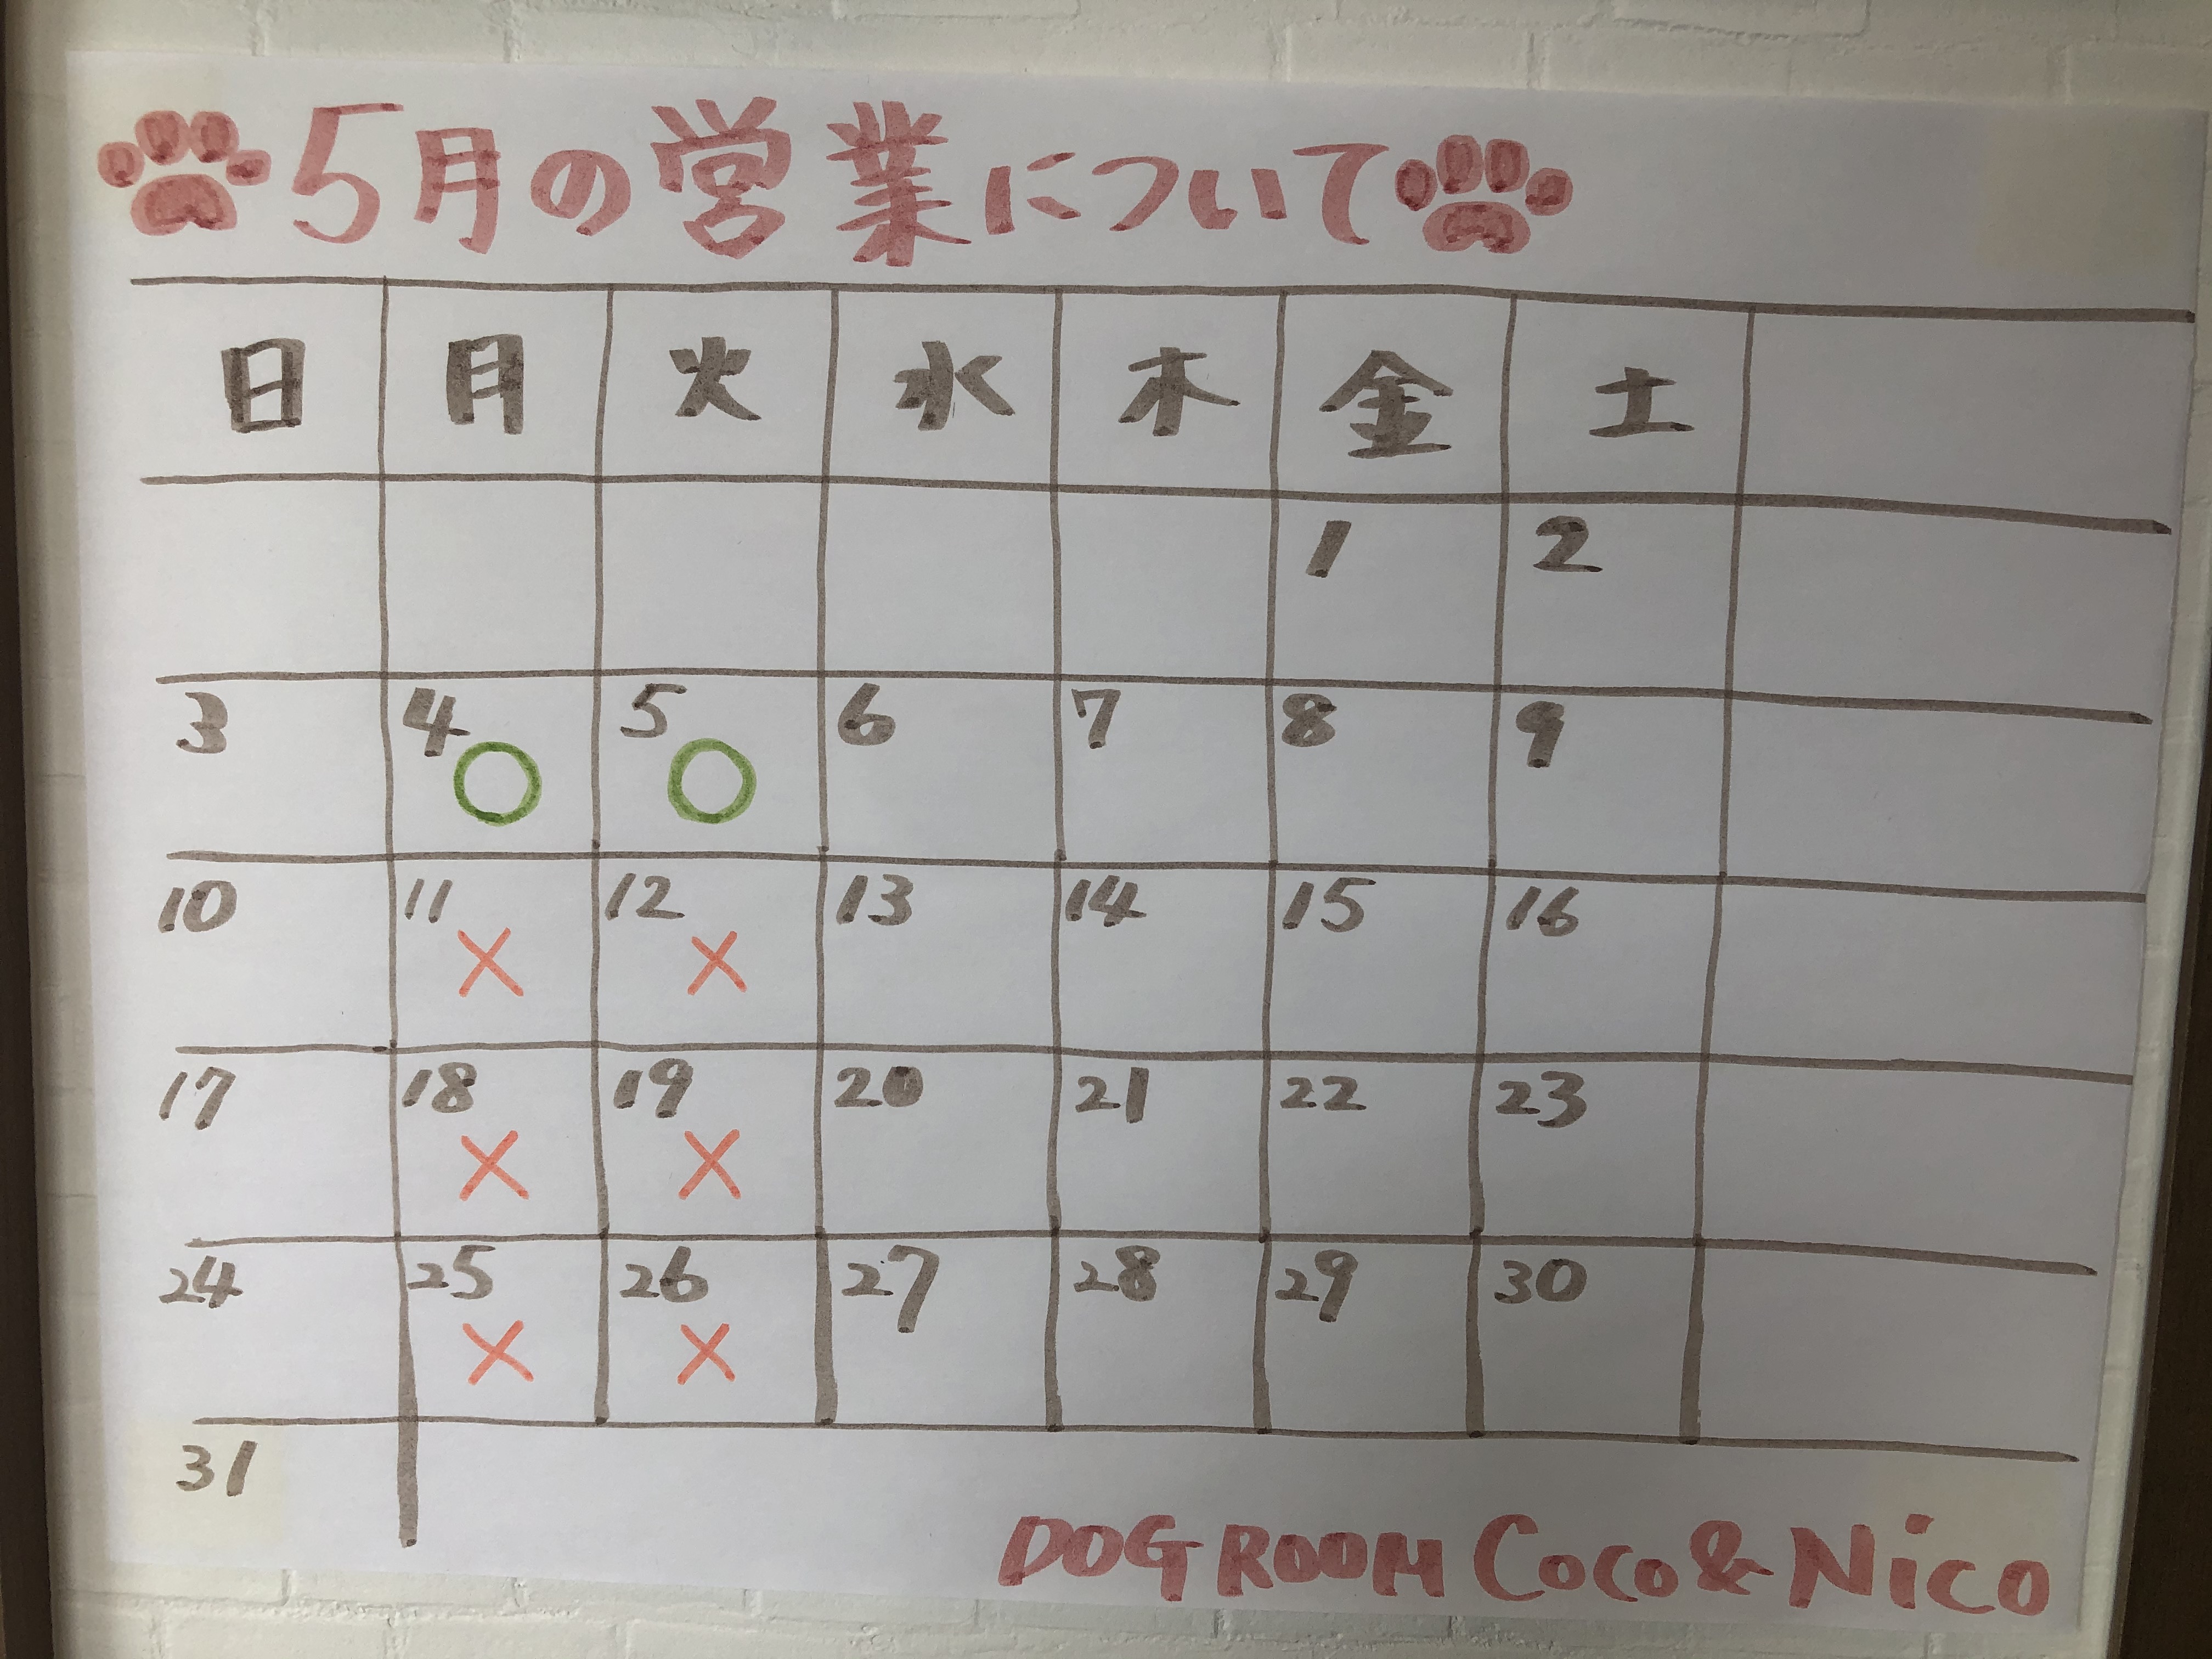 5月の営業について
日 月 火 水 木 金 土
1 2
3 4 5 6 7 8 9
○ ○
10 11 12 13 14 15 16
× ×
17 18 19 20 21 22 23
× ×
24 25 26 27 28 29 30
× ×
31
DOG ROOM Coco & Nico